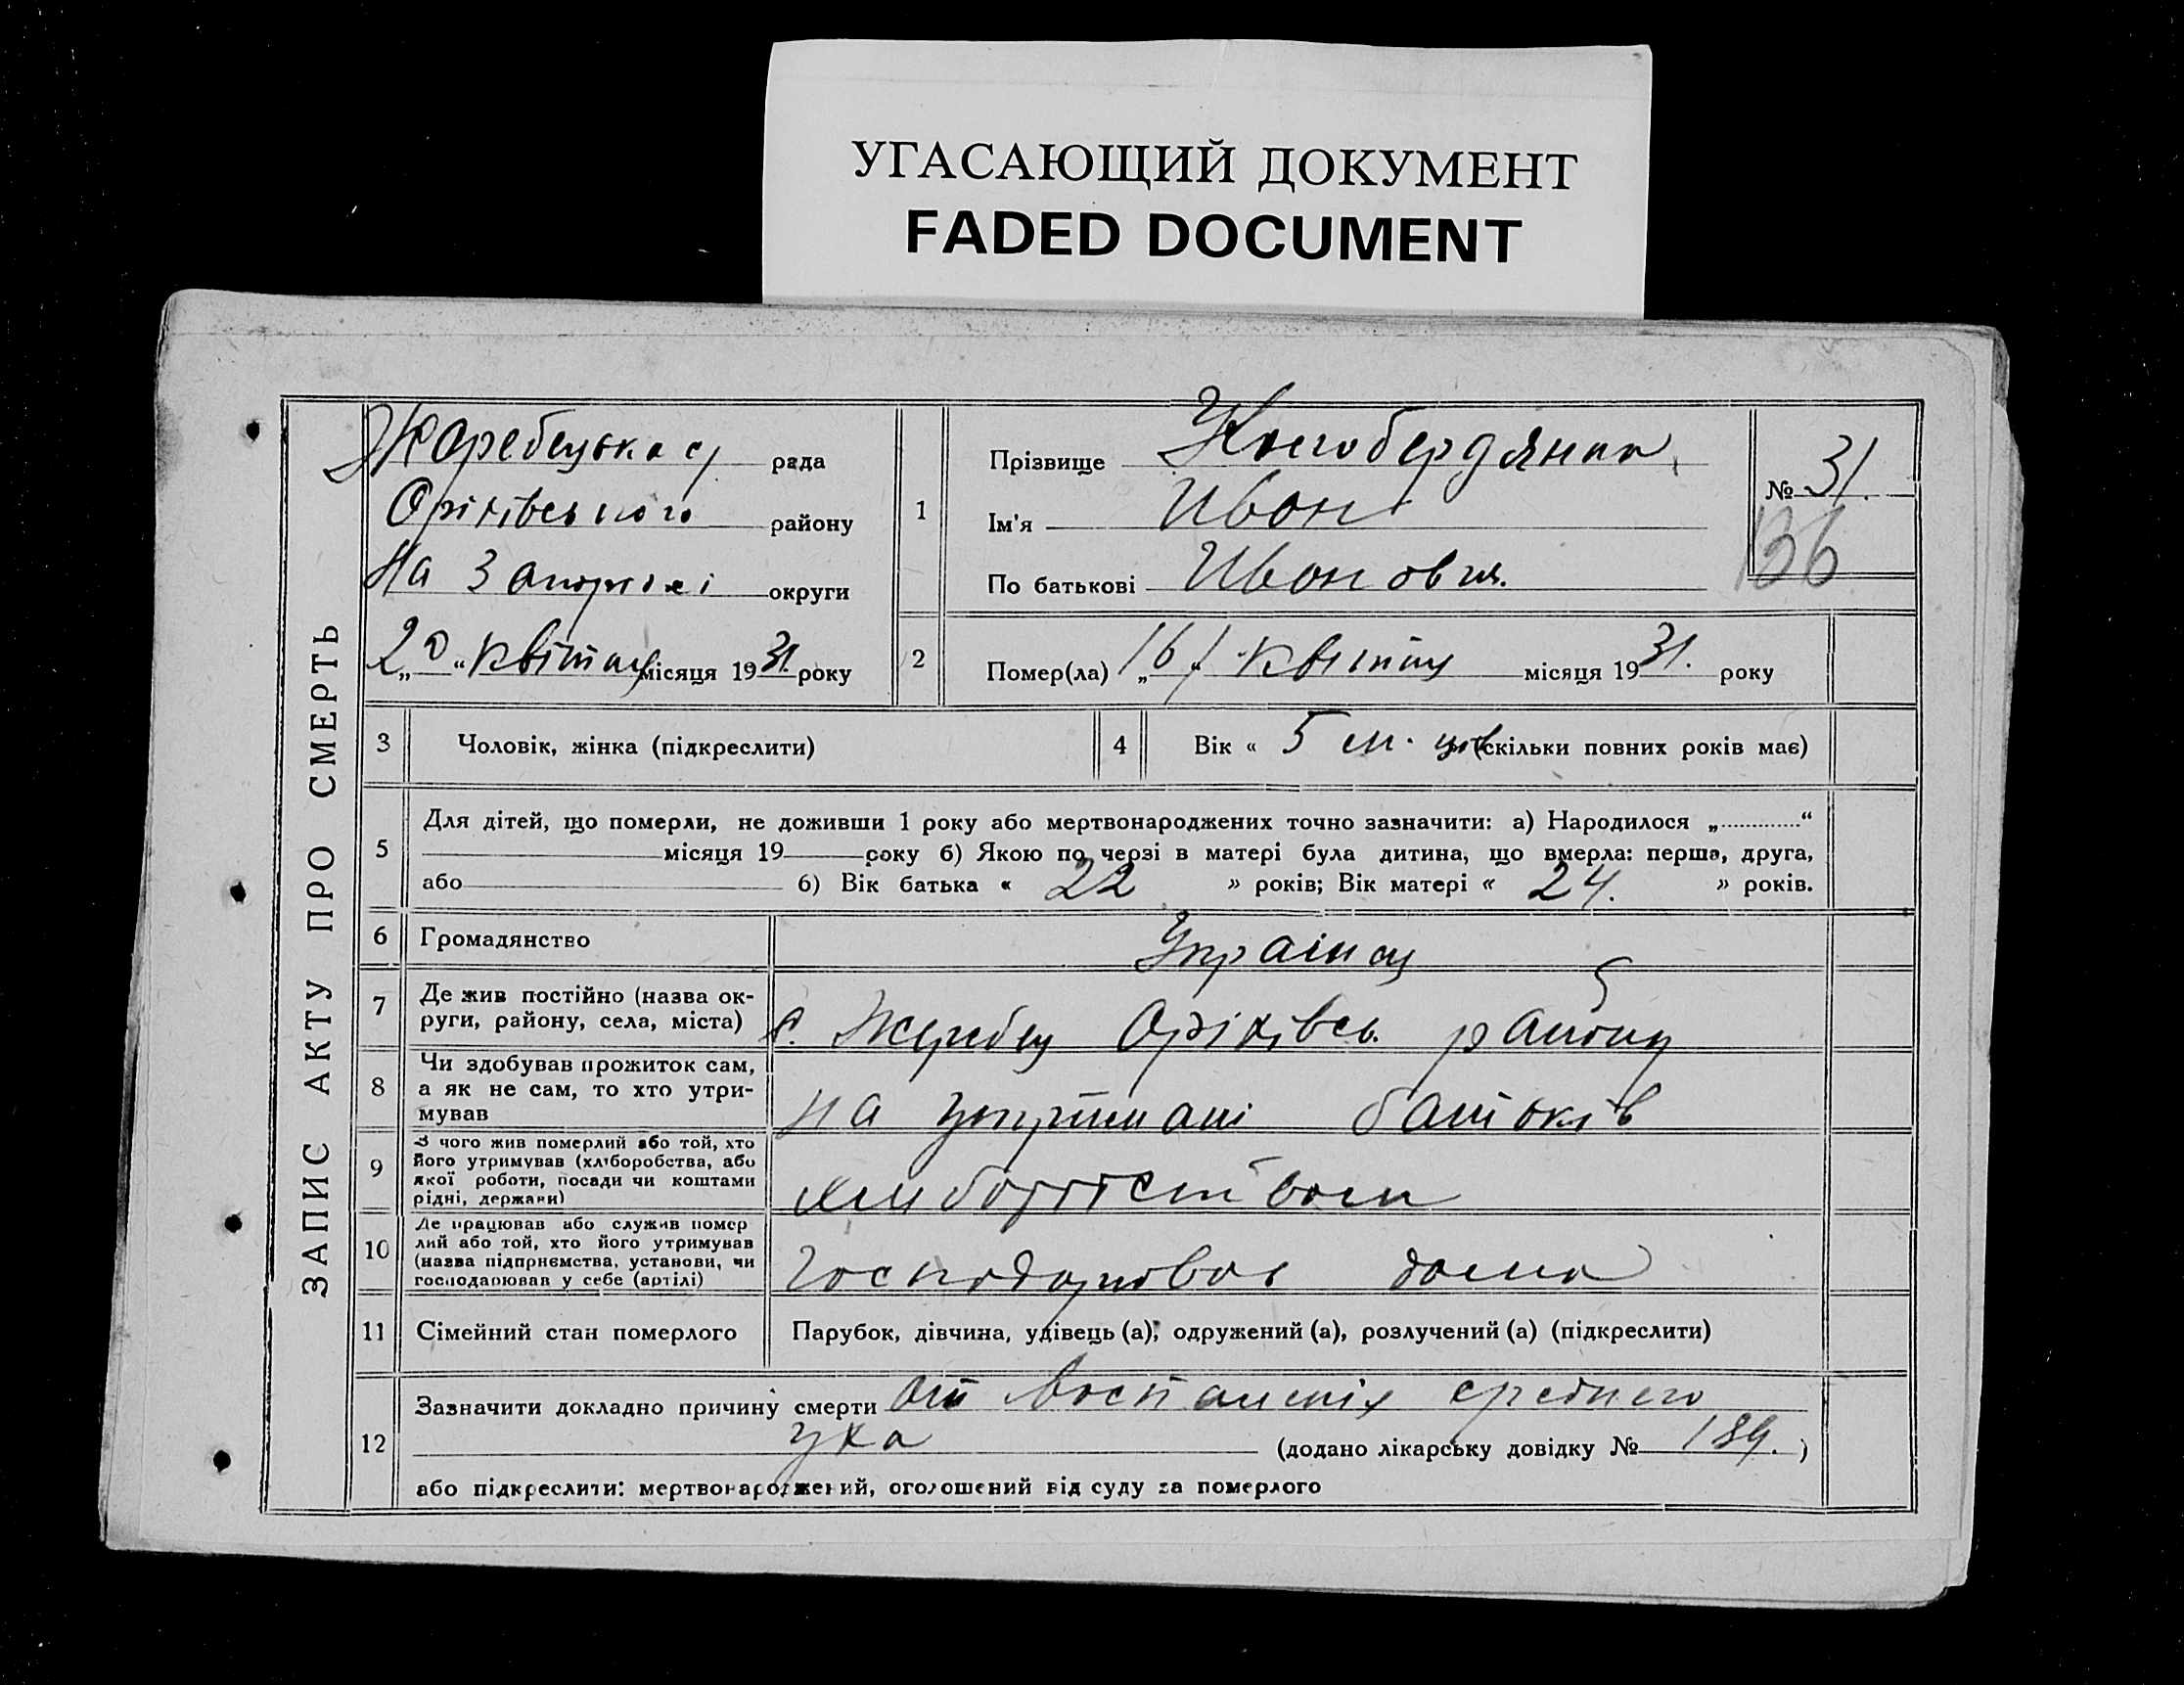 УГАСАЮЩИЙ ДОКУМЕНТ
FADED DOCUMENT
ЗАПИС АКТУ ПРО СМЕРТЬ
Жеребецька с/ рада
Оріхівського району
На Запоріжжі округи
"20" квітня місяця 1931. року
1
Прізвище
Ім'я Иван
По батькові Иванович.
№ 31.
136
2
Помер(ла) „16" квітня місяця 1931. року
3 Чоловік, жінка (підкреслити)
4 Вік « 5 м-ців (скільки повних років має)
5
Для дітей, що померли, не доживши 1 року або мертвонароджених точно зазначити: а) Народилося „............."
місяця 19 року б) Якою по черзі в матері була дитина, що вмерла: перша, друга,
або б) Вік батька « 22 » років; Вік матері « 24. » років.
6 Громадянство Украінец
7 Де жив постійно (назва ок-
руги, району, села, міста) с. Жеребец Оріхівсь. району
8 Чи здобував прожиток сам,
а як не сам, то хто утри-
мував на утриман і батьків
9 З чого жив померлий або той, хто
його утримував (хліборобства, або
якої роботи, посади чи коштами
рідні, держави)
10 Де працював або служив помер
лий або той, хто його утримував
(назва підприємства, установи, чи
господарював у себе (артілі) Господарював дома
11 Сімейний стан померлого Парубок, дівчина, удівець (а), одружений (а), розлучений (а) (підкреслити)
12
Зазначити докладно причину смерти от воспаления среднего
уха (додано лікарську довідку № 189. )
або підкреслити: мертвонароджений, оголошений від суду за померлого